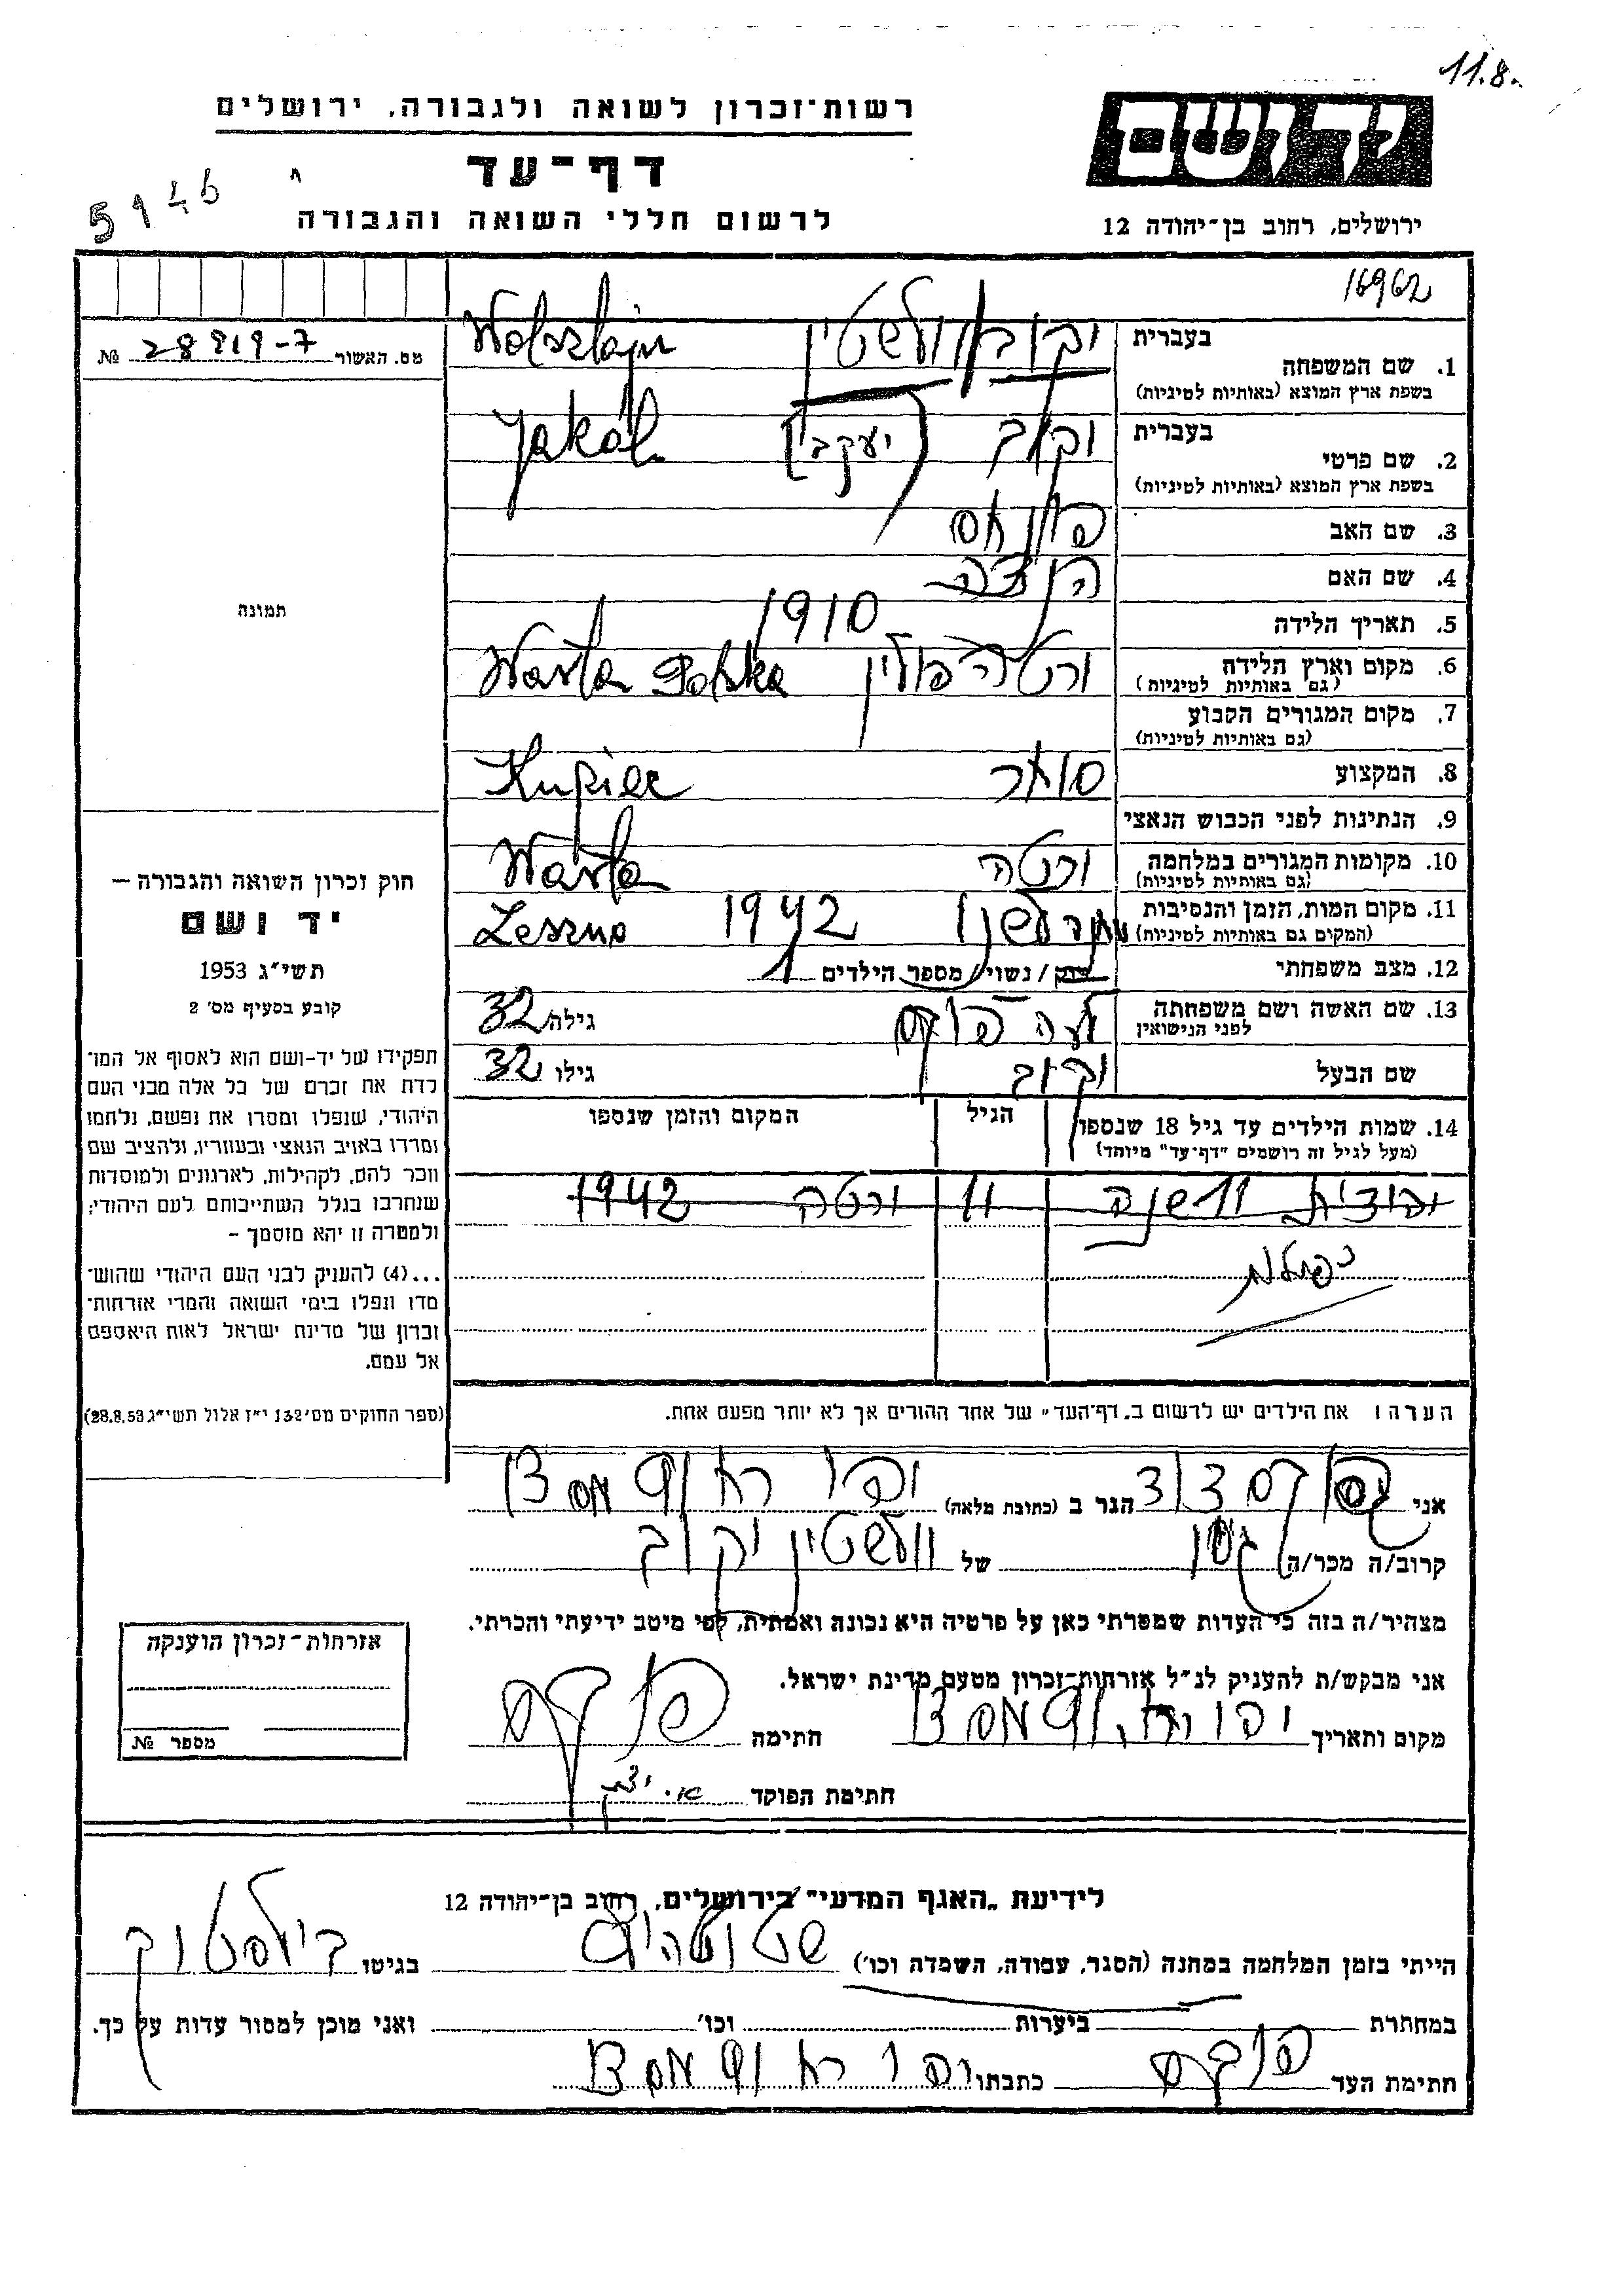 11.8.
רשות־זכרון לשואה ולגבורה, ירושלים
יד ושם
דף־עד
5946
לרשום חללי השואה והגבורה
ירושלים, רחוב בן־יהודה 12
16962
מס. האשור № 28919-7
בעברית וולשטיין Wolsztajn
1. שם המשפחה
בשפת ארץ המוצא (באותיות לטיניות)
בעברית יקוב (יעקב) Jakób
2. שם פרטי
בשפת ארץ המוצא (באותיות לטיניות)
3. שם האב
4. שם האם
תמונה
5. תאריך הלידה 1910
6. מקום וארץ הלידה ורטה פולין Warta Polska
(גם באותיות לטיניות)
7. מקום המגורים הקבוע
(גם באותיות לטיניות)
8. המקצוע סוחר Kupiec
9. הנתינות לפני הכבוש הנאצי
10. מקומות המגורים במלחמה ורטה Warta
(גם באותיות לטיניות)
11. מקום המות, הזמן והנסיבות לשנו 1942 Leszno
(המקום גם באותיות לטיניות)
12. מצב משפחתי רוק / נשוי / מספר הילדים 1
13. שם האשה ושם משפחתה לעה פוקס גילה 32
לפני הנישואין
שם הבעל יקוב גילו 32
14. שמות הילדים עד גיל 18 שנספו הגיל המקום והזמן שנספו
(מעל לגיל זה רושמים "דף־עד" מיוחד)
יהודית 11 שנה 11 ורטה 1942
הערה: את הילדים יש לרשום ב„דף־העד" של אחד ההורים אך לא יותר מפעם אחת.
חוק זכרון השואה והגבורה —
יד ושם
תשי"ג 1953
קובע בסעיף מס' 2
תפקידו של יד־ושם הוא לאסוף אל המו־
לדת את זכרם של כל אלה מבני העם
היהודי, שנפלו ומסרו את נפשם, נלחמו
ומרדו באויב הנאצי ובעוזריו, ולהציב שם
וזכר להם, לקהילות, לארגונים ולמוסדות
שנחרבו בגלל השתייכותם לעם היהודי;
ולמטרה זו יהא מוסמך –
...(4) להעניק לבני העם היהודי שהוש־
מדו ונפלו בימי השואה והמרי אזרחות־
זכרון של מדינת ישראל לאות היאספם
אל עמם.
(ספר החוקים מס' 132 י"ז אלול תשי"ג 28.8.53)
אני הגר ב (כתובת מלאה)
קרוב/ה מכר/ה גיסו של וולשטיין יקוב
מצהיר/ה בזה כי העדות שמסרתי כאן על פרטיה היא נכונה ואמתית, לפי מיטב ידיעתי והכרתי.
אני מבקש/ת להעניק לנ"ל אזרחות־זכרון מטעם מדינת ישראל.
מקום ותאריך חתימה
חתימת הפוקד
אזרחות־זכרון הוענקה
מספר №
לידיעת „האגף המדעי" בירושלים, רחוב בן־יהודה 12
הייתי בזמן המלחמה במחנה (הסגר, עבודה, השמדה וכו') שטוטהוף בגיטו
במחתרת ביערות וכו' ואני מוכן למסור עדות על כך.
חתימת העד כתבתו